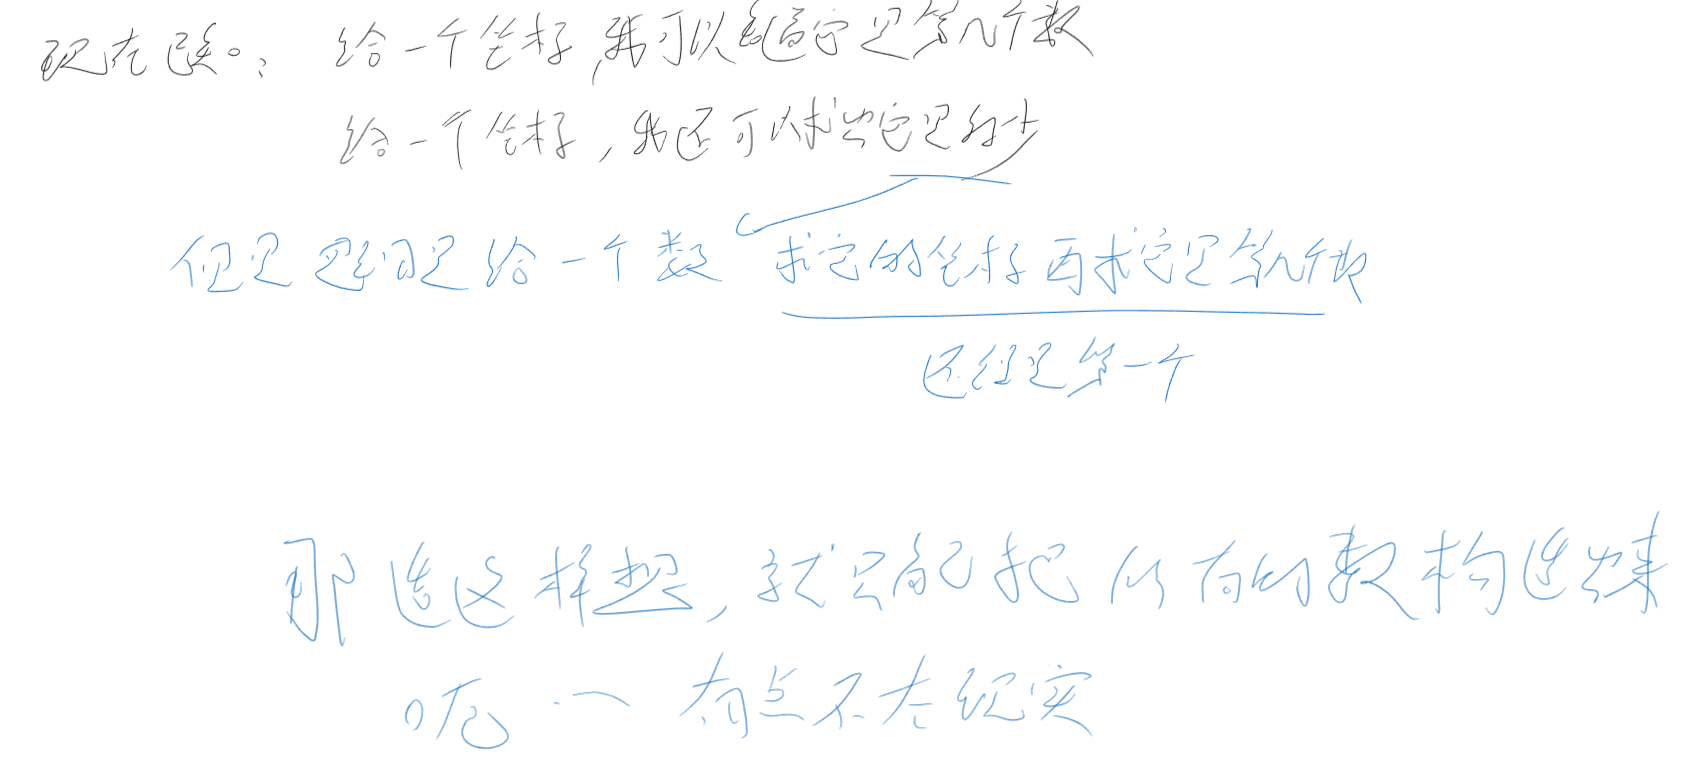 现在已知:给一个坐标,我可以知道它是第几个数
给一个坐标,我还可以求出它是多少
但是题目是给一个数 求它的坐标再求它是第几个数
还须是第一个
那造这样想,就只能把所有的数构造出来
呃…有点不太现实